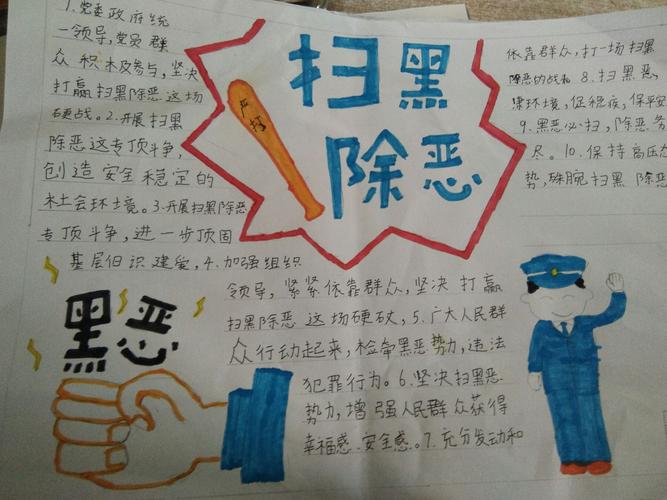 1.党委政府统
一领导,党员群
众积极参与,坚决
打赢扫黑除恶这场
硬战。2.开展扫黑
除恶这专项斗争,
创造安全稳定的
社会环境。3.开展扫黑除恶
专项斗争,进一步顶固
基层组织建设,4.加强组织
严打
扫黑
除恶
黑恶
领导,紧紧依靠群众,坚决打赢
扫黑除恶这场硬仗,5.广大人民群
众行动起来,检举黑恶势力,违法
犯罪行为。6.坚决扫黑恶
势力,增强人民群众获得
幸福感、安全感。7.充分发动和
依靠群众,打一场扫黑
除恶的战和8.扫黑恶,
环境,促稳疫,保平安
9.黑恶必扫,除恶务
尽。10.保持高压态
势,殊腕扫黑除恶